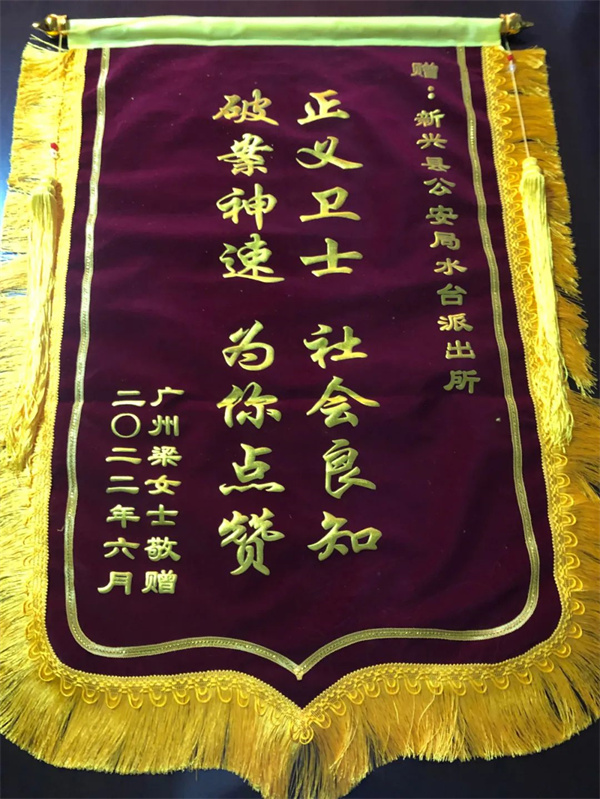 赠：新兴县公安局水台派出所
正义卫士 社会良知
破案神速 为你点赞
广州梁女士敬赠
二〇二二年六月